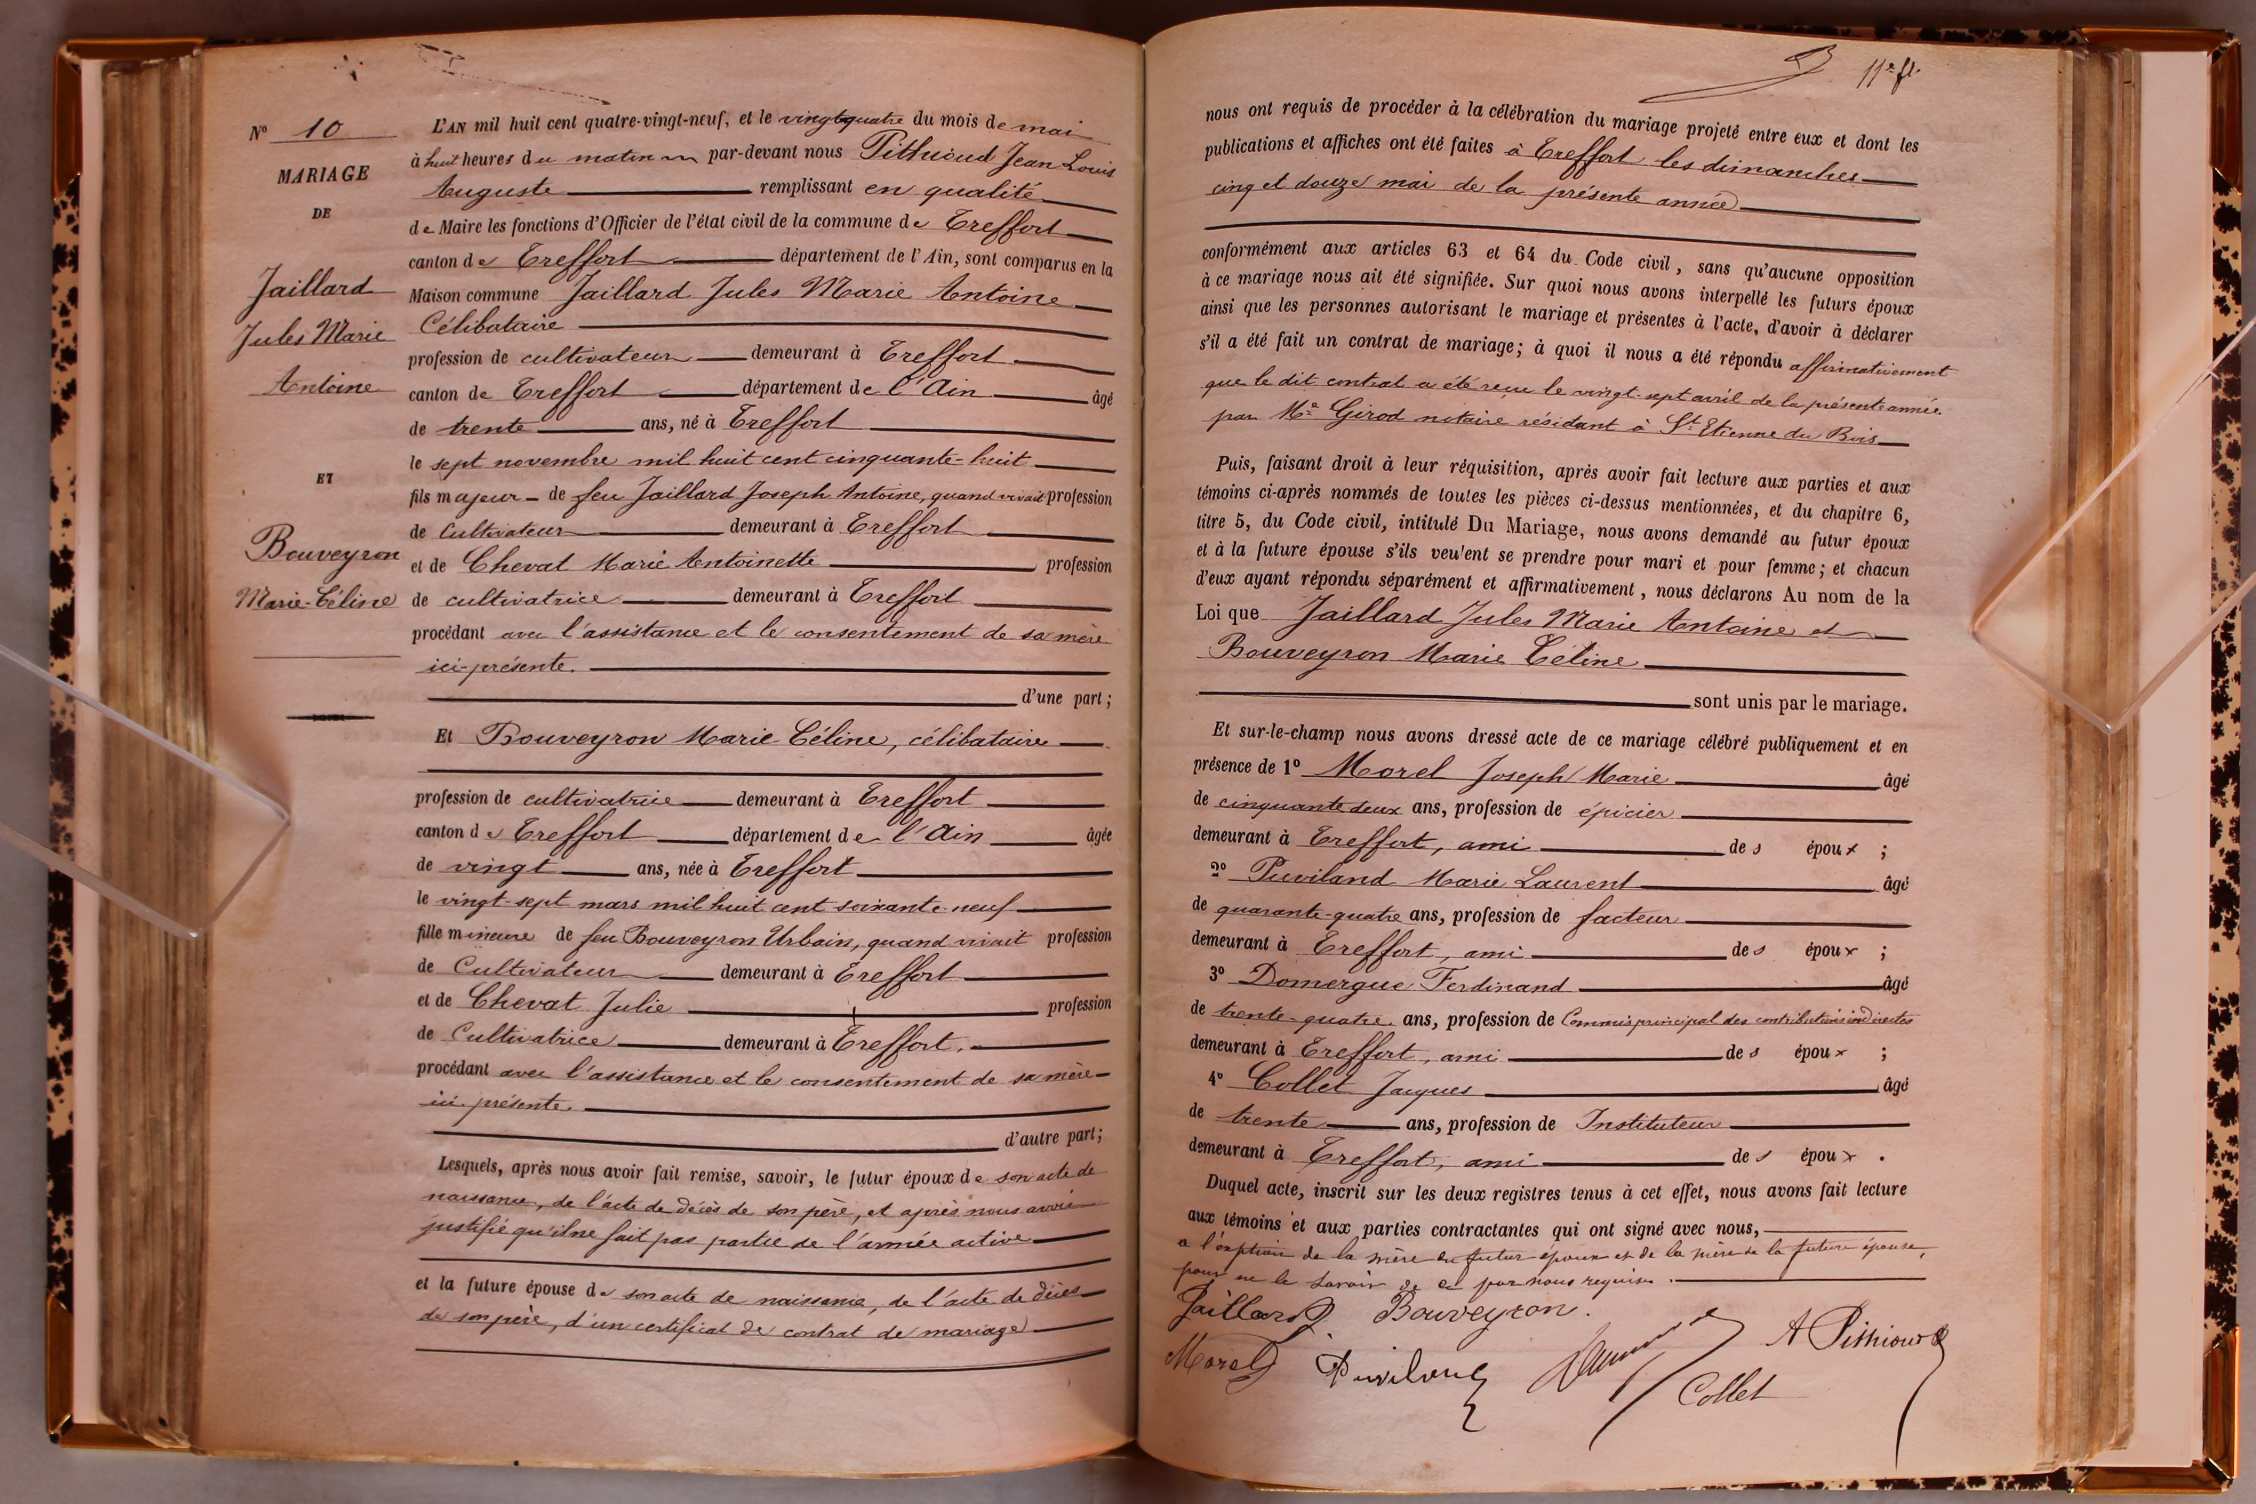 N° 10
MARIAGE
DE
Jaillard
Jules Marie
Antoine
ET
Bouveyron
Marie-Céline
L'AN mil huit cent quatre-vingt-neuf, et le vingt quatre du mois de mai
à huit heures du matin par-devant nous Pithioud Jean Louis
Auguste remplissant en qualité
de Maire les fonctions d'Officier de l'état civil de la commune de Treffort
canton de Treffort département de l'Ain, sont comparus en la
Maison commune Jaillard Jules Marie Antoine
Célibataire
profession de cultivateur demeurant à Treffort
canton de Treffort département de l'Ain âgé
de trente ans, né à Treffort
le sept novembre mil huit cent cinquante-huit
fils majeur de feu Jaillard Joseph Antoine, quand vivait profession
de Cultivateur demeurant à Treffort
et de Chevat Marie Antoinette profession
de cultivatrice demeurant à Treffort
procédant avec l'assistance et le consentement de sa mère
ici-présente.
d'une part;
Et Bouveyron Marie Céline, célibataire
profession de cultivatrice demeurant à Treffort
canton de Treffort département de l'Ain âgée
de vingt ans, née à Treffort
le vingt-sept mars mil huit cent soixante-neuf
fille mineure de feu Bouveyron Urbain, quand vivait profession
de Cultivateur demeurant à Treffort
et de Chevat Julie profession
de Cultivatrice demeurant à Treffort.
procédant avec l'assistance et le consentement de sa mère
ici présente.
d'autre part;
Lesquels, après nous avoir fait remise, savoir, le futur époux de son acte de
naissance, de l'acte de décès de son père, et après nous avoir
justifié qu'il ne fait pas partie de l'armée active
et la future épouse de son acte de naissance, de l'acte de décès
de son père, d'un certificat de contrat de mariage
11e fl.
nous ont requis de procéder à la célébration du mariage projeté entre eux et dont les
publications et affiches ont été faites à Treffort les dimanches
cinq et douze mai de la présente année
conformément aux articles 63 et 64 du Code civil, sans qu'aucune opposition
à ce mariage nous ait été signifiée. Sur quoi nous avons interpellé les futurs époux
ainsi que les personnes autorisant le mariage et présentes à l'acte, d'avoir à déclarer
s'il a été fait un contrat de mariage; à quoi il nous a été répondu affirmativement
que le dit contrat a été reçu le vingt-sept avril de la présente année
par Me Girod notaire résidant à St Etienne du Bois
Puis, faisant droit à leur réquisition, après avoir fait lecture aux parties et aux
témoins ci-après nommés de toutes les pièces ci-dessus mentionnées, et du chapitre 6,
titre 5, du Code civil, intitulé Du Mariage, nous avons demandé au futur époux
et à la future épouse s'ils veulent se prendre pour mari et pour femme; et chacun
d'eux ayant répondu séparément et affirmativement, nous déclarons Au nom de la
Loi que Jaillard Jules Marie Antoine et
Bouveyron Marie Céline
sont unis par le mariage.
Et sur-le-champ nous avons dressé acte de ce mariage célébré publiquement et en
présence de 1° Morel Joseph Marie âgé
de cinquante deux ans, profession de épicier
demeurant à Treffort, ami des époux ;
2° Puviland Marie Laurent âgé
de quarante-quatre ans, profession de facteur
demeurant à Treffort, ami des époux ;
3° Domergue Ferdinand âgé
de trente-quatre ans, profession de Commis principal des contributions indirectes
demeurant à Treffort, ami des époux ;
4° Collet Jacques âgé
de trente ans, profession de Instituteur
demeurant à Treffort, ami des époux .
Duquel acte, inscrit sur les deux registres tenus à cet effet, nous avons fait lecture
aux témoins et aux parties contractantes qui ont signé avec nous,
a l'exption de la mère du futur époux et de la mère de la future épouse,
pour ne le savoir de ce par nous requises.
Jaillard Bouveyron.
Morel Puviland A Pithioud
Collet